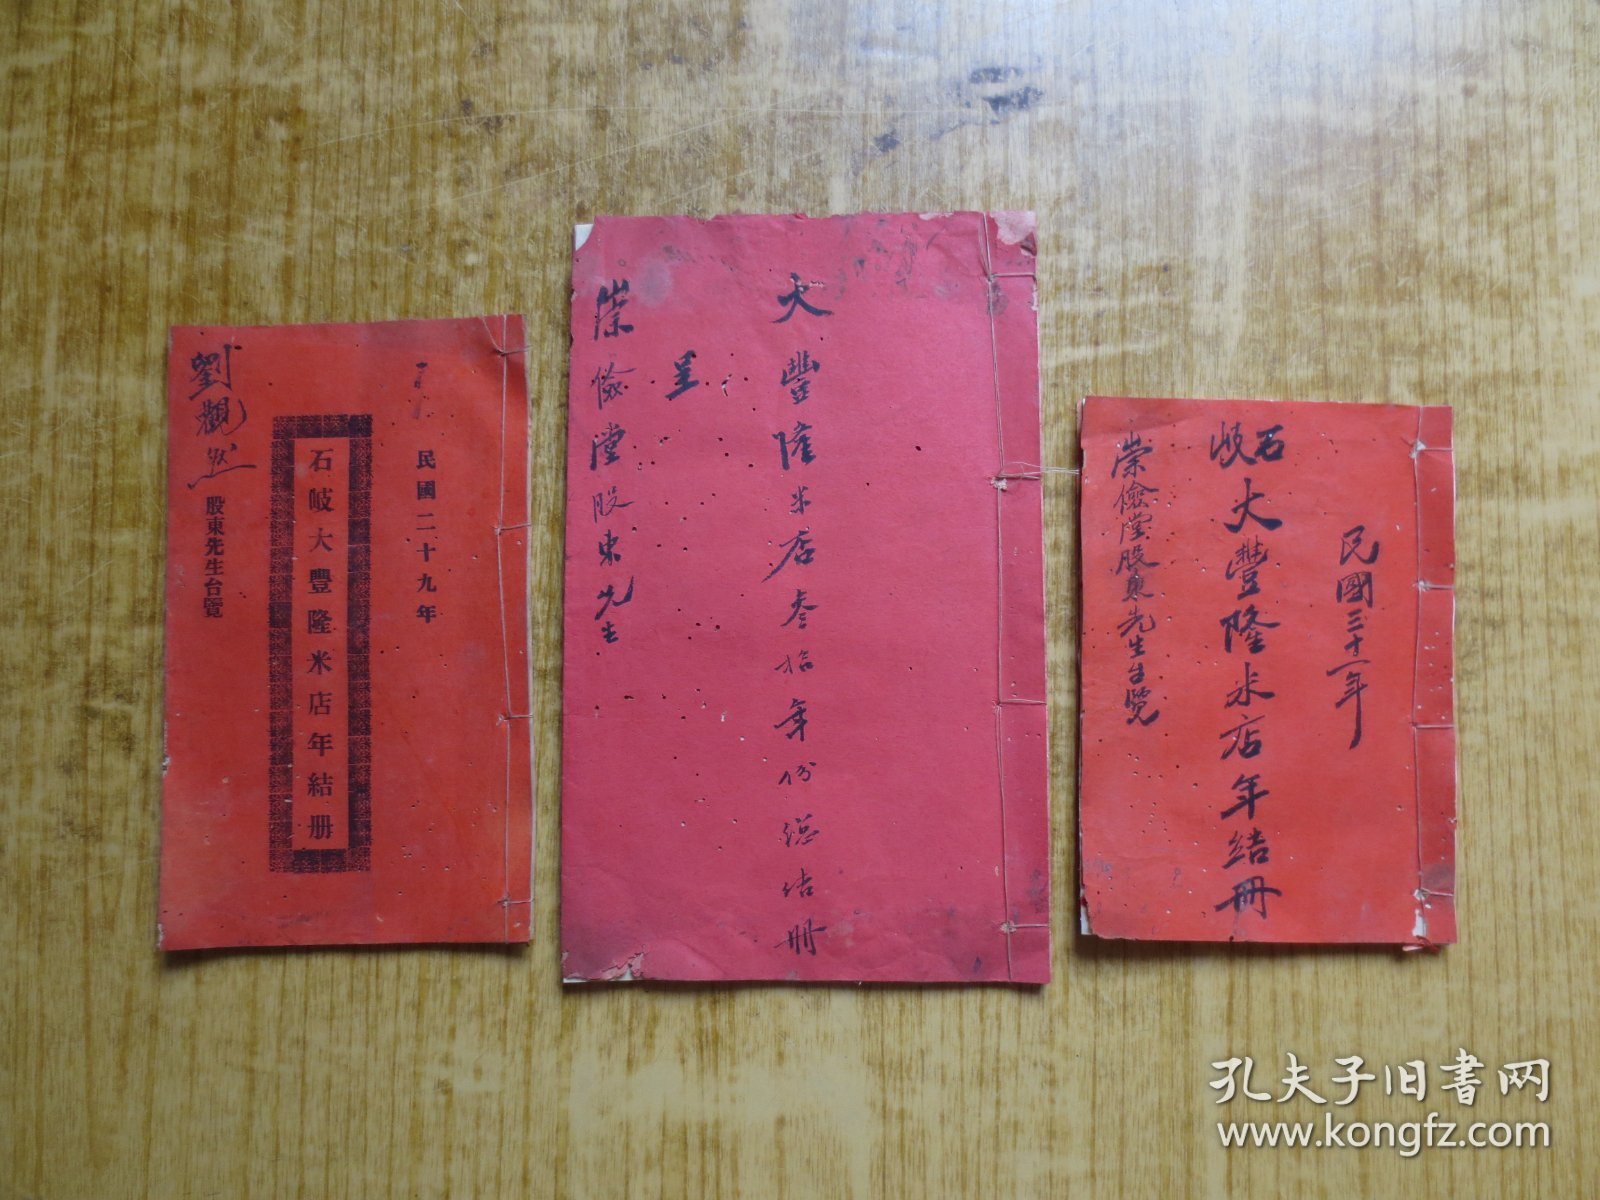 民國二十九年
石岐大豐隆米店年結册
劉觀
股東先生台覽
大豐隆米店叁拾年份總结册
呈
崇儉堂股東先生
民國三十一年
石岐大豐隆米店年结冊
崇儉堂股東先生台覽
孔夫子旧書网
www.kongfz.com